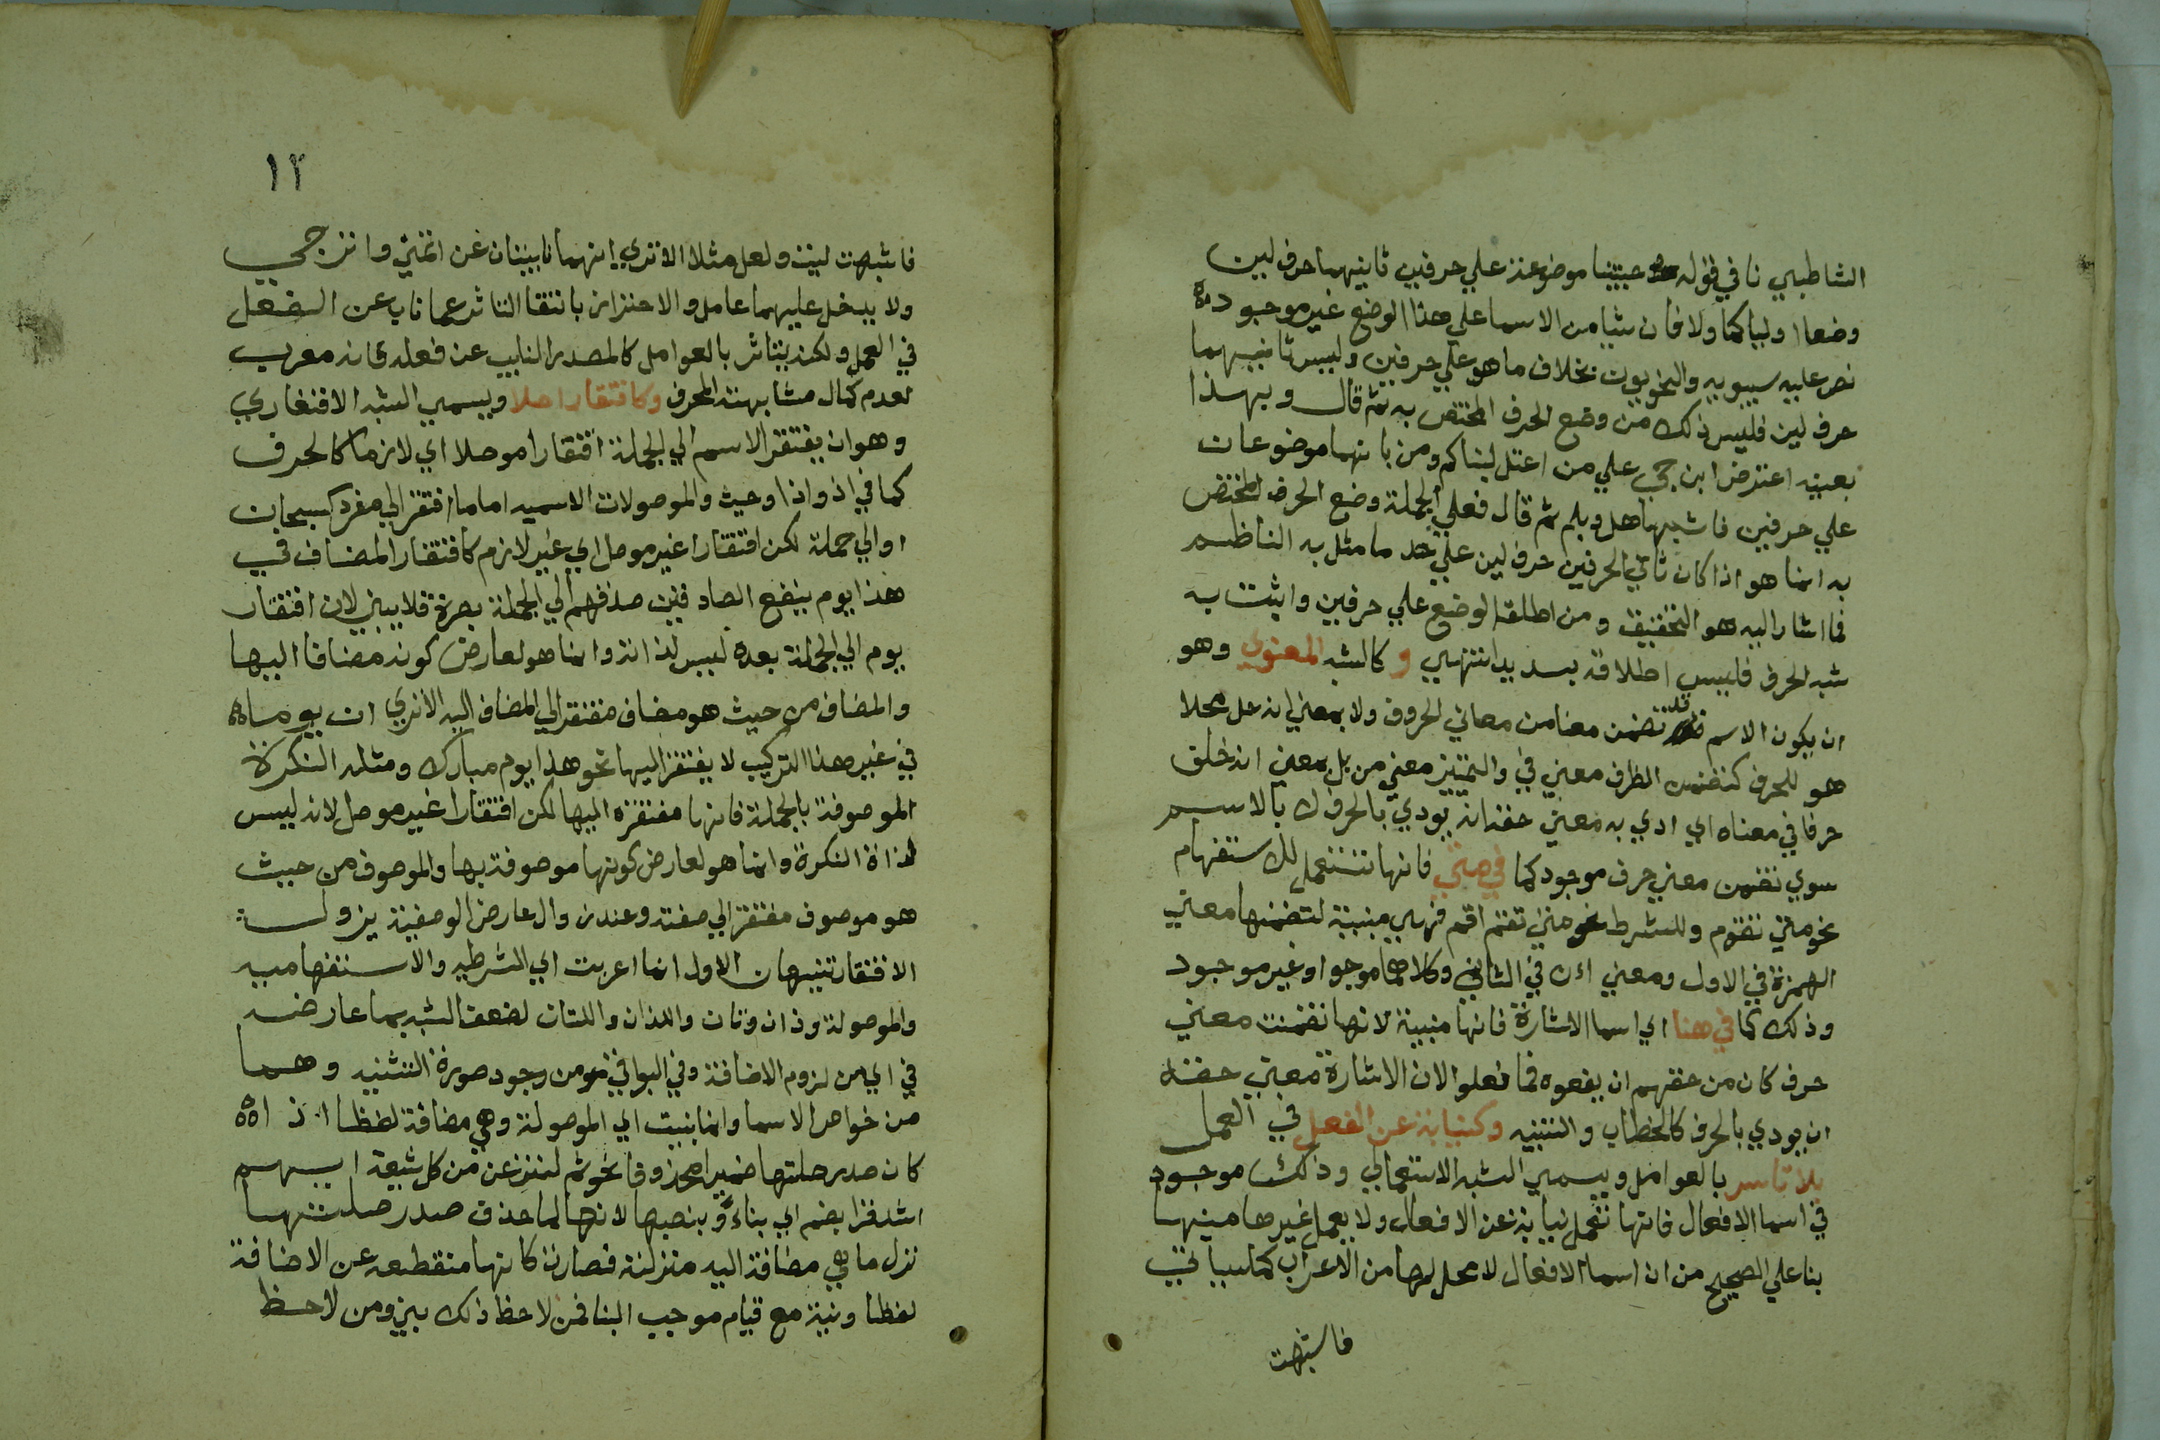 الشاطبي نا في قوله جيتنا موضوعة علي حرفين ثانيهما حرف لين
وضعا اوليا كما ولا فان شيا من الاسما علي هذا الوضع غير موجود
نص عليه سيبويه والنحويون بخلاف ما هو علي حرفين وليس ثانيهما
حرف لين فليس ذلك من وضع الحرف المختص به ثم قال وبهذا
بعينه اعترض ابن جني علي من اعتل لبناكم ومن بانهما موضوعات
علي حرفين فاشبها هل وبل ثم قال فعلي الجملة وضع الحرف المختص
به انما هو اذا كان ثاني الحرفين حرف لين علي حد ما مثل به الناظم
فما اشار اليه هو التحقيق ومن اطلق الوضع علي حرفين واثبت به
شبه الحرف فليس اطلاقه بسديد انتهي و كالشبه المعنوي وهو
ان يكون الاسم قد تضمن معنا من معاني الحروف ولا بمعني انه حل محلا
هو للحرف كتضمن الظرف معني في والتمييز معني من بل بمعني انه خلق
حرفا في معناه اي ادي به معني حقه ان يودي بالحرف لا بالاسم
سوي تضمن معني حرف موجود كما في متي فانها تستعمل للاستفهام
نحو متي تقوم وللشرط نحو متي تقم اقم فهي مبنية لتضمنها معني
الهمزة في الاول ومعني ان في الثاني وكلاهما موجود او غير موجود
وذلك كما في هنا اي اسما الاشارة فانها مبنية لانها تضمنت معني
حرف كان من حقهم ان يضعوه فما فعلوا لان الاشارة معني حقه
ان يودي بالحرف كالخطاب والتنبيه وكنيابة عن الفعل في العمل
بلا تاثر بالعوامل ويسمي الشبه الاستعمالي وذلك موجود
في اسما الافعال فانها تعمل نيابة عن الافعال ولا يعمل غيرها فيها
بنا علي الصحيح من ان اسما الافعال لا محل لها من الاعراب كما سياتي
فاشبهت
١٢
فاشبهت ليت ولعل مثلا الا تري انهما نايبتان عن اتمني واترجي
ولا يدخل عليهما عامل والاحتراز بانتفا التاثر عما ناب عن الفعل
في العمل ولكنه يتاثر بالعوامل كالمصدر النايب عن فعله فانه معرب
لعدم كمال مشابهته للحرف وكافتقار اصلا ويسمي الشبه الافتقاري
وهو ان يفتقر الاسم الي الجملة افتقارا موصلا اي لازما كالحرف
كما في اذ واذا وحيث والموصولات الاسميه اما ما افتقر الي مفرد كسبحان
او الي جملة لكن افتقارا غير موصل اي غير لازم كافتقار المضاف في
هذا يوم ينفع الصادقين صدقهم الي الجملة بعده فلا يبني لان افتقار
يوم الي الجملة بعده ليس لذاته وانما هو لعارض كونه مضافا اليها
والمضاف من حيث هو مضاف مفتقر الي المضاف اليه الا تري ان يوما
في غير هذا التركيب لا يفتقر اليها نحو هذا يوم مبارك ومثله النكرة
الموصوفة بالجملة فانها مفتقرة اليها لكن افتقارا غير موصل لانه ليس
لذاة النكرة وانما هو لعارض كونها موصوفة بها والموصوف من حيث
هو موصوف مفتقر الي صفته وعند زوال عارض الوصفية يزول
الافتقار تنبيهان الاول انما اعربت اي الشرطيه والاستفهاميه
والموصولة وذان وتان واللذان واللتان لضعف الشبه بما عارضه
في اي من لزوم الاضافة وفي البواقي من وجود صورة التثنيه وهما
من خواص الاسما وانما بنيت اي الموصولة وهي مضافة لفظا اذا
كان صدر صلتها ضميرا محذوفا نحو ثم لننزعن من كل شيعة ايهم
اشد قرا بضم اي بناء وبنصبها لانها لما حذف صدر صلتها
نزل ما هي مضافة اليه منزلته فصارت كانها منقطعه عن الاضافة
لفظا ونية مع قيام موجب البنا فمن لاحظ ذلك بني ومن لاحظ